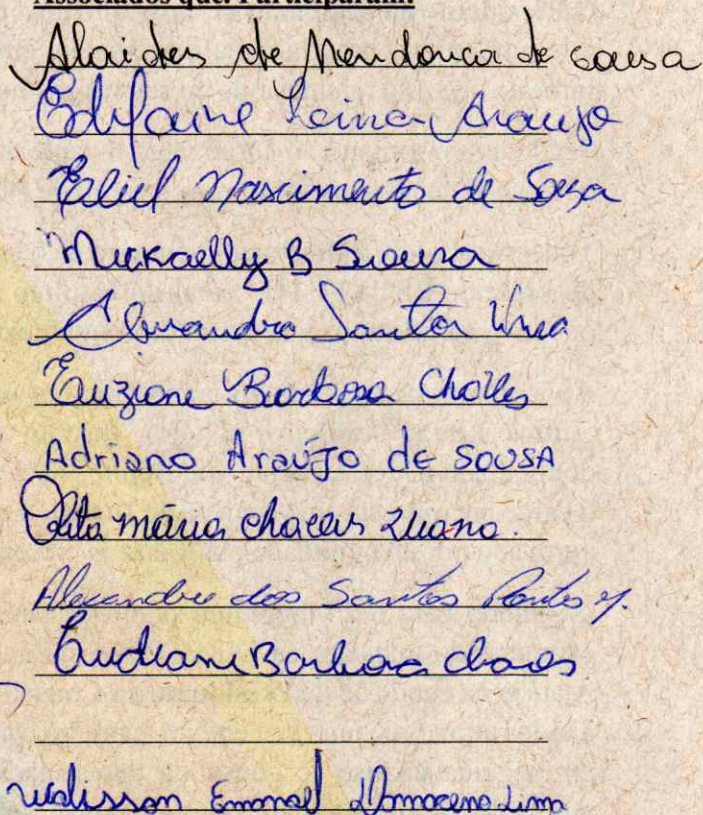 Associados que. Participaram:
Alaides de Mendonca de sousa
Edilaine Araujo
Eliel Nascimento de Souza
Mickaelly B Sousa
Santos Lima
Euzione Barbosa Chaves
Adriano Araújo de Sousa
Rita mária chaves
Alexandre dos Santos Pontes
Eudiane Barbosa chaves
Walisson Emanoel Damaceno Lima